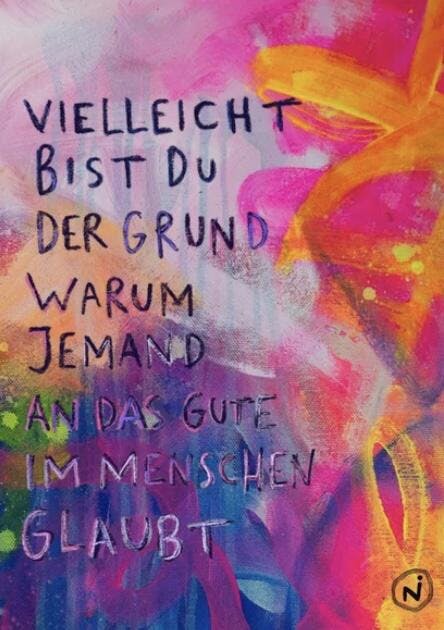 VIELLEICHT
BIST DU
DER GRUND
WARUM
JEMAND
AN DAS GUTE
IM MENSCHEN
GLAUBT